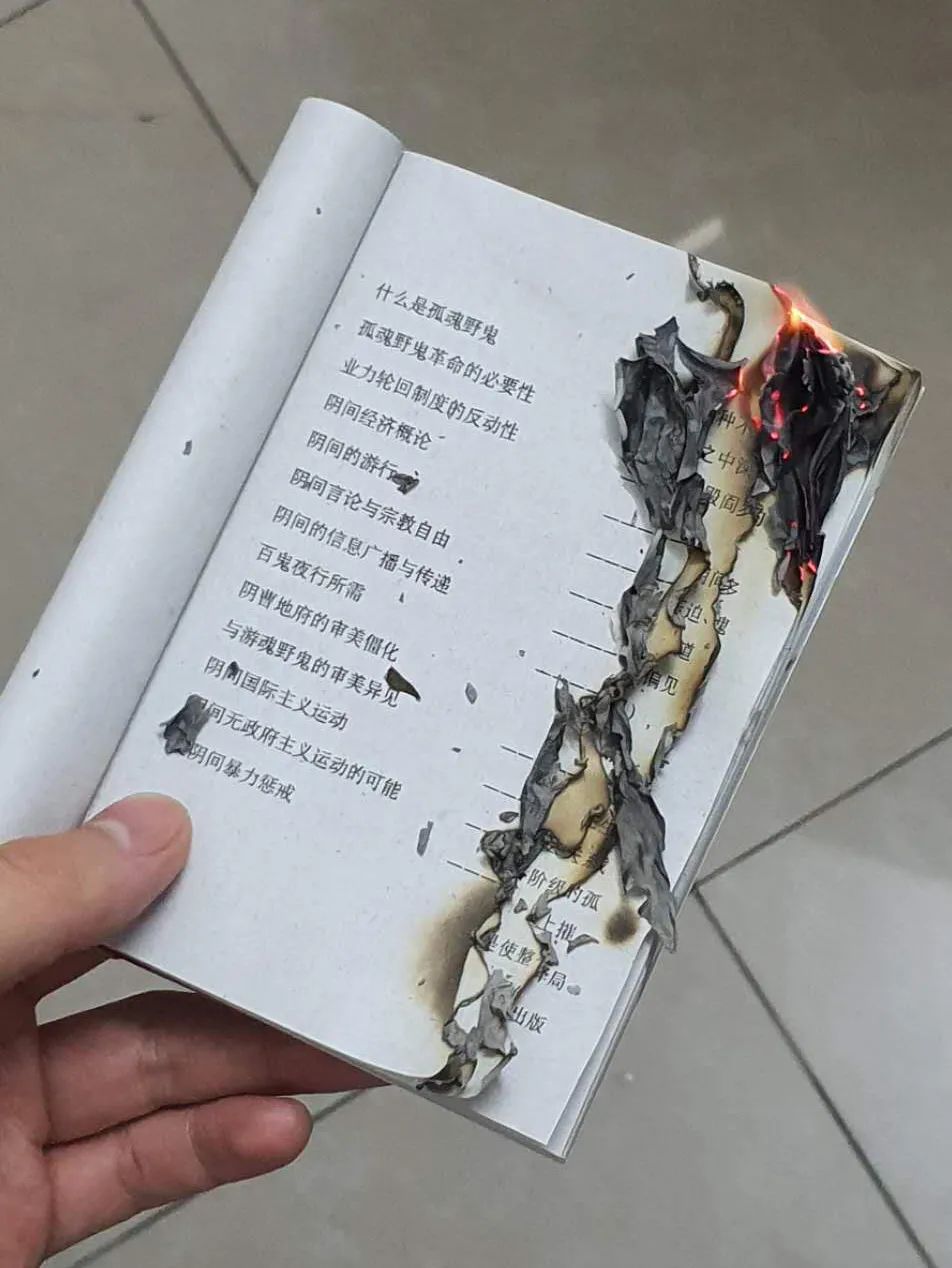 什么是孤魂野鬼
孤魂野鬼革命的必要性
业力轮回制度的反动性
阴间经济概论
阴间的游行
阴间言论与宗教自由
阴间的信息广播与传递
百鬼夜行所需
阴曹地府的审美僵化
与游魂野鬼的审美异见
阴间国际主义运动
阴间无政府主义运动的可能
阴间暴力惩戒
种
之中
间多
迫、鬼
道
偏见
阶级的孤
上摧
是使整
译局
出版